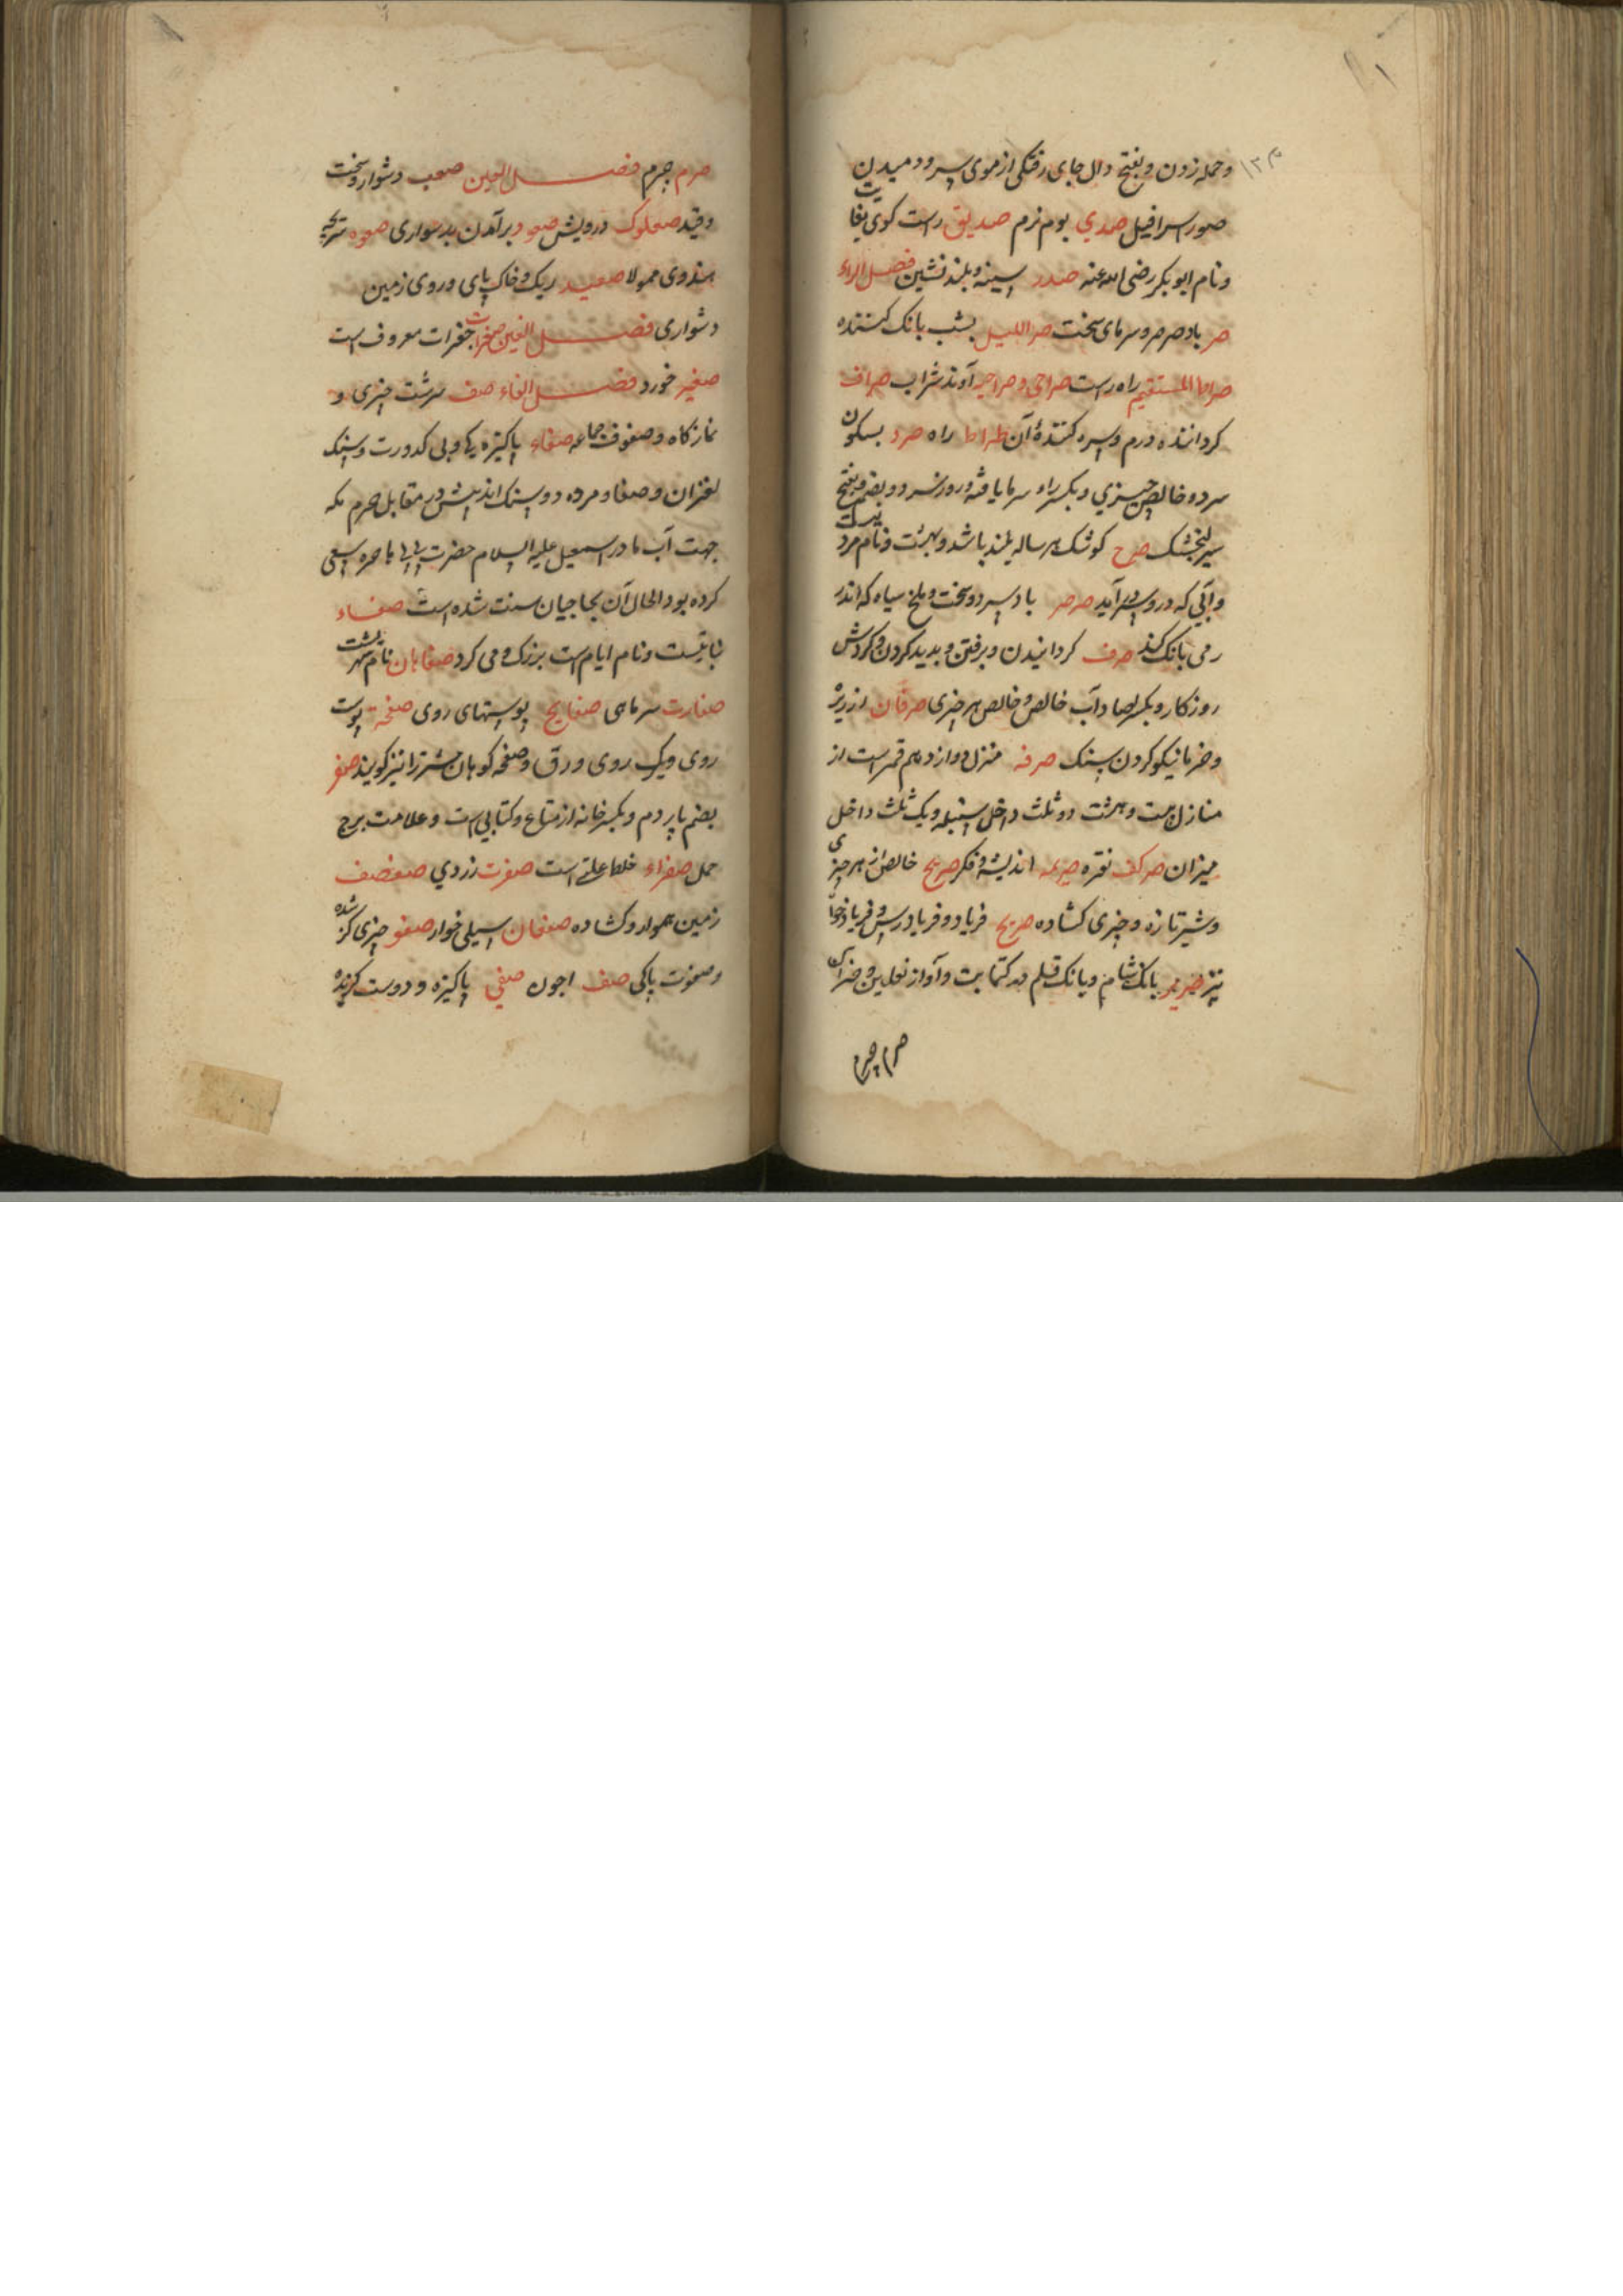 ۱۳۴
و حمله زدن و بفتح دال جای رفتگی از موی سر و دمیدن
صور اسرافیل صدی بوم نرم صدیق راست کوی بغایت
و نام ابوبکر رضی الله عنه صدر سینه و بلند نشین فصل الراء
صر باد صرصر و سرمای سخت صر اللیل بشب بانک کننده
صراط المستقیم راه راست صراحی و صراحیه آوند شراب صراف
کرداننده درم و سره کننده آن صراط راه صرد بسکون
سرد و خالص چیزی و بکسر راء سرما یافته و روز سرد و بضم و بفتح
صرح کوشک هر ساله بلند باشد و نام مردیست
و آبی که درو سر آید صرصر باد سرد و سخت و ملخ سیاه که اندر
رمی بانک کند صرف کردانیدن و برفتن و بدید کردن و کردش
روزکار و بکسر صاد آب خالص و خالص هر چیزی صرفان ارزیز
و خرما نیکو کردن سنک صرفه منزل دوازدهم قمر است از
منازل بیست و هشت دو ثلث داخل سنبله و یک ثلث داخل
میزان صرکف نقره صریمه اندیشه و فکر صریح خالص از هر چیزی
و شیر تازه و چیزی کشاده صریخ فریاد و فریادرس و فریاد خواه
نیز صریر بانک شام و بانک قلم در کتابت و آواز نعلین و خراس
صرم چرم
صرم چرم فصل العین صعب دشوار و سخت
و قید صعلوک درویش صعود برآمدن بدشواری صعوه سریچه
هندوی ممولا صعید ریک و خاک پای و روی زمین
دشواری فصل الغین صغرات جغرات معروف است
صغیر خورد فصل الفاء صف سرشت چیزی و
نمازکاه و صفوف جماعه صفاء پاکیزه یکی و بی کدورت و سنک
لغزان و صفا و مروه دو سنک اندیش در مقابل حرم مکه
جهت آب مادر اسمعیل علیه السلام حضرت بی بی هاجره سعی
کرده بود الحال آن بحاجیان سنت شده است صفاء
نباتیست و نام ایام است بزرک و می کرد صفاهان نام شهریست
صفارت سرماهی صفایح پوستهای روی صفحة پوست
روی و یک روی ورق و صفحه کوهان شتر را نیز کویند صفر
بضم پاردم و بکسر خانه از متاع و کتابی است و علامت برج
حمل صفراء خلط علتی است صفرت زردی صفصف
زمین هموار و کشاده صفعان سیلی خوار صفو چیزی کزشده
و صفوت پاکی صف اجون صفی پاکیزه و دوست کزیده